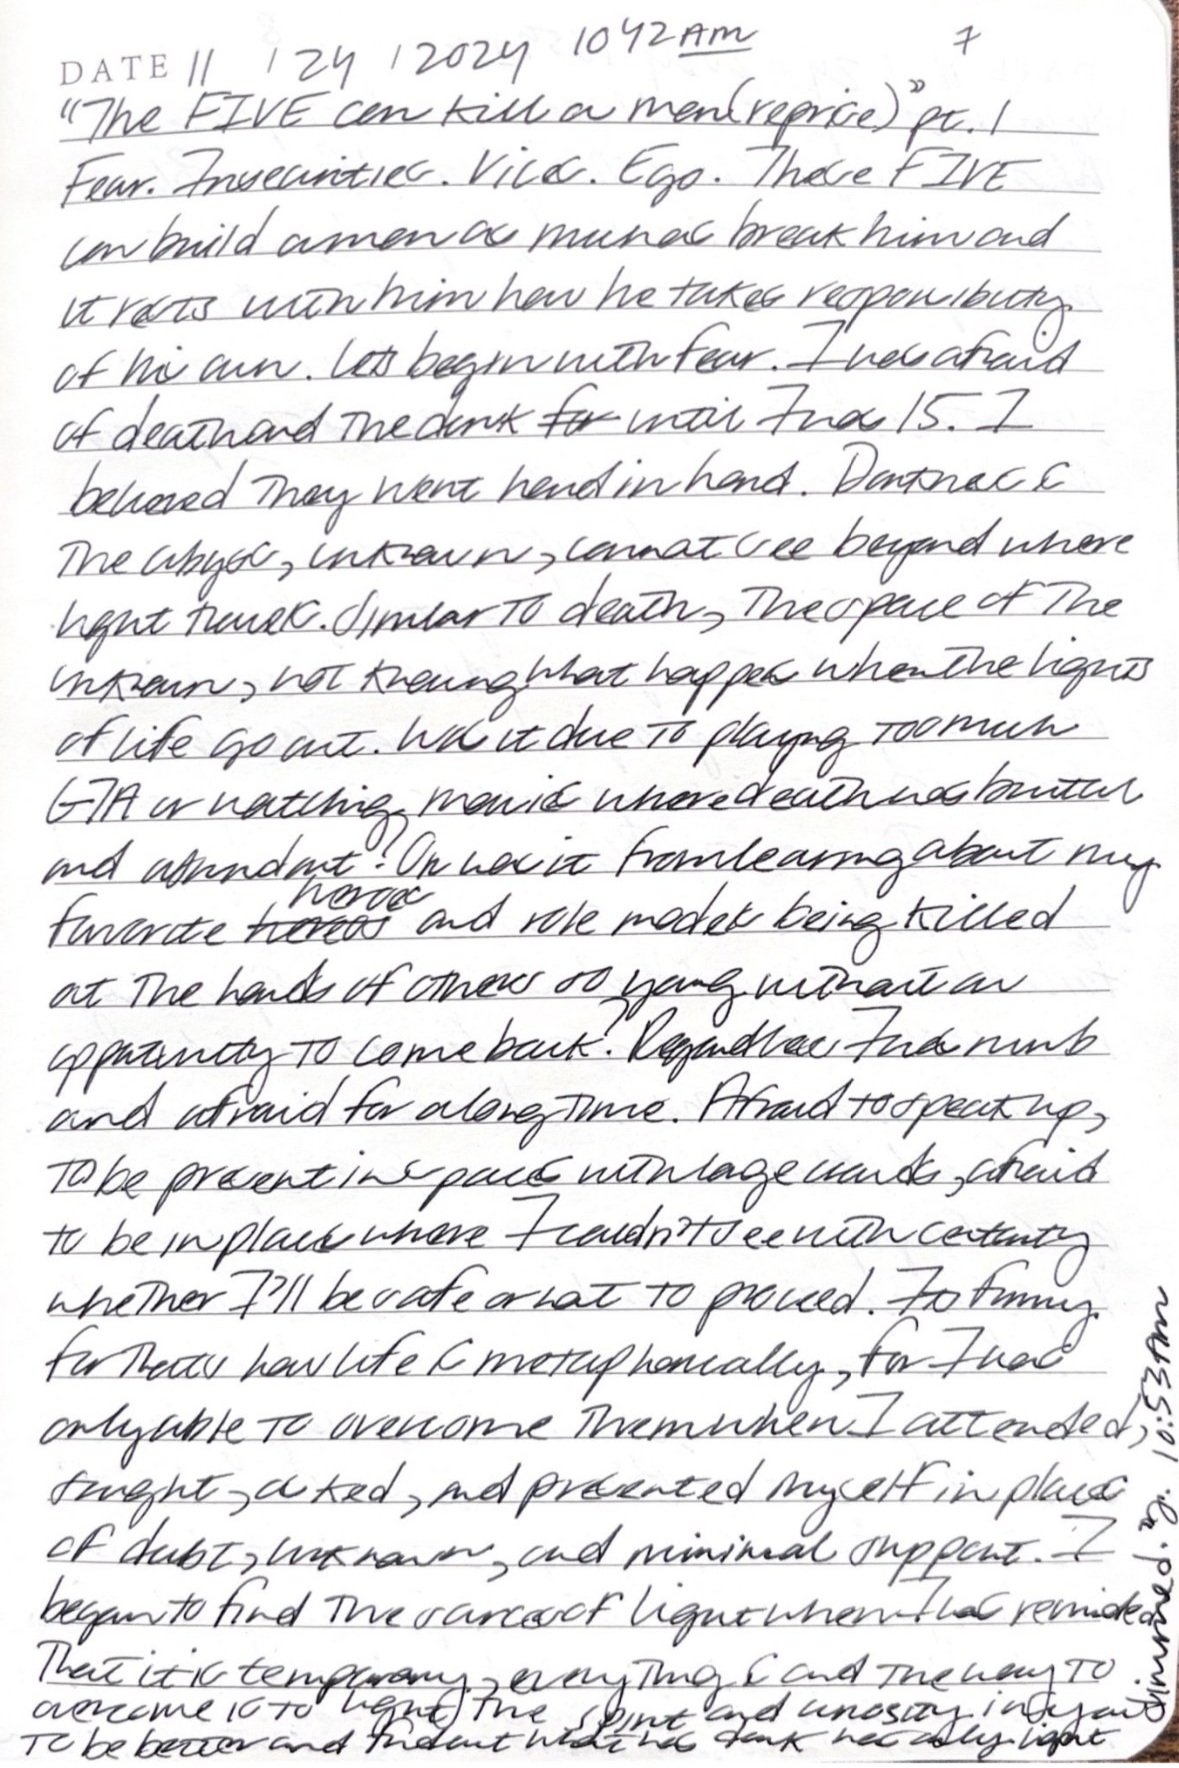 DATE 11 / 24 / 2024 10 42 AM 7
"The FIVE can kill a man (reprise)" pt. 1
Fear. Insecurities. Vices. Ego. These FIVE
can build a man as much as break him and
it rests with him how he takes responsibility
of his own. Lets begin with fear. I was afraid
of death and the dark for until I was 15. I
believed they went hand in hand. Darkness is
the abyss, unknown, cannot see beyond where
light travels. Similar to death, the space of the
unknown, not knowing what happens when the lights
of life go out. Was it due to playing too much
GTA or watching movies where death was brutal
and abundant? Or was it from learning about my
heroes
favorite heroes and role models being killed
at the hands of others so young without an
opportunity to come back? Regardless I was numb
and afraid for a long time. Afraid to speak up,
to be present in spaces with large crowds, afraid
to be in places where I couldn't see with certainty
whether I'll be safe or not to proceed. Its funny
for thats how life is metaphorically, for I was
only able to overcome them when I attended,
fought, asked, and presented myself in places
of doubt, unknown, and minimal support. I
began to find the sources of light when I was reminded
that it is temporary, everything is and the way to
overcome is to light the spirit and curiosity in you
to be better and find out what was dark was only light
dimmed. 10:53 AM